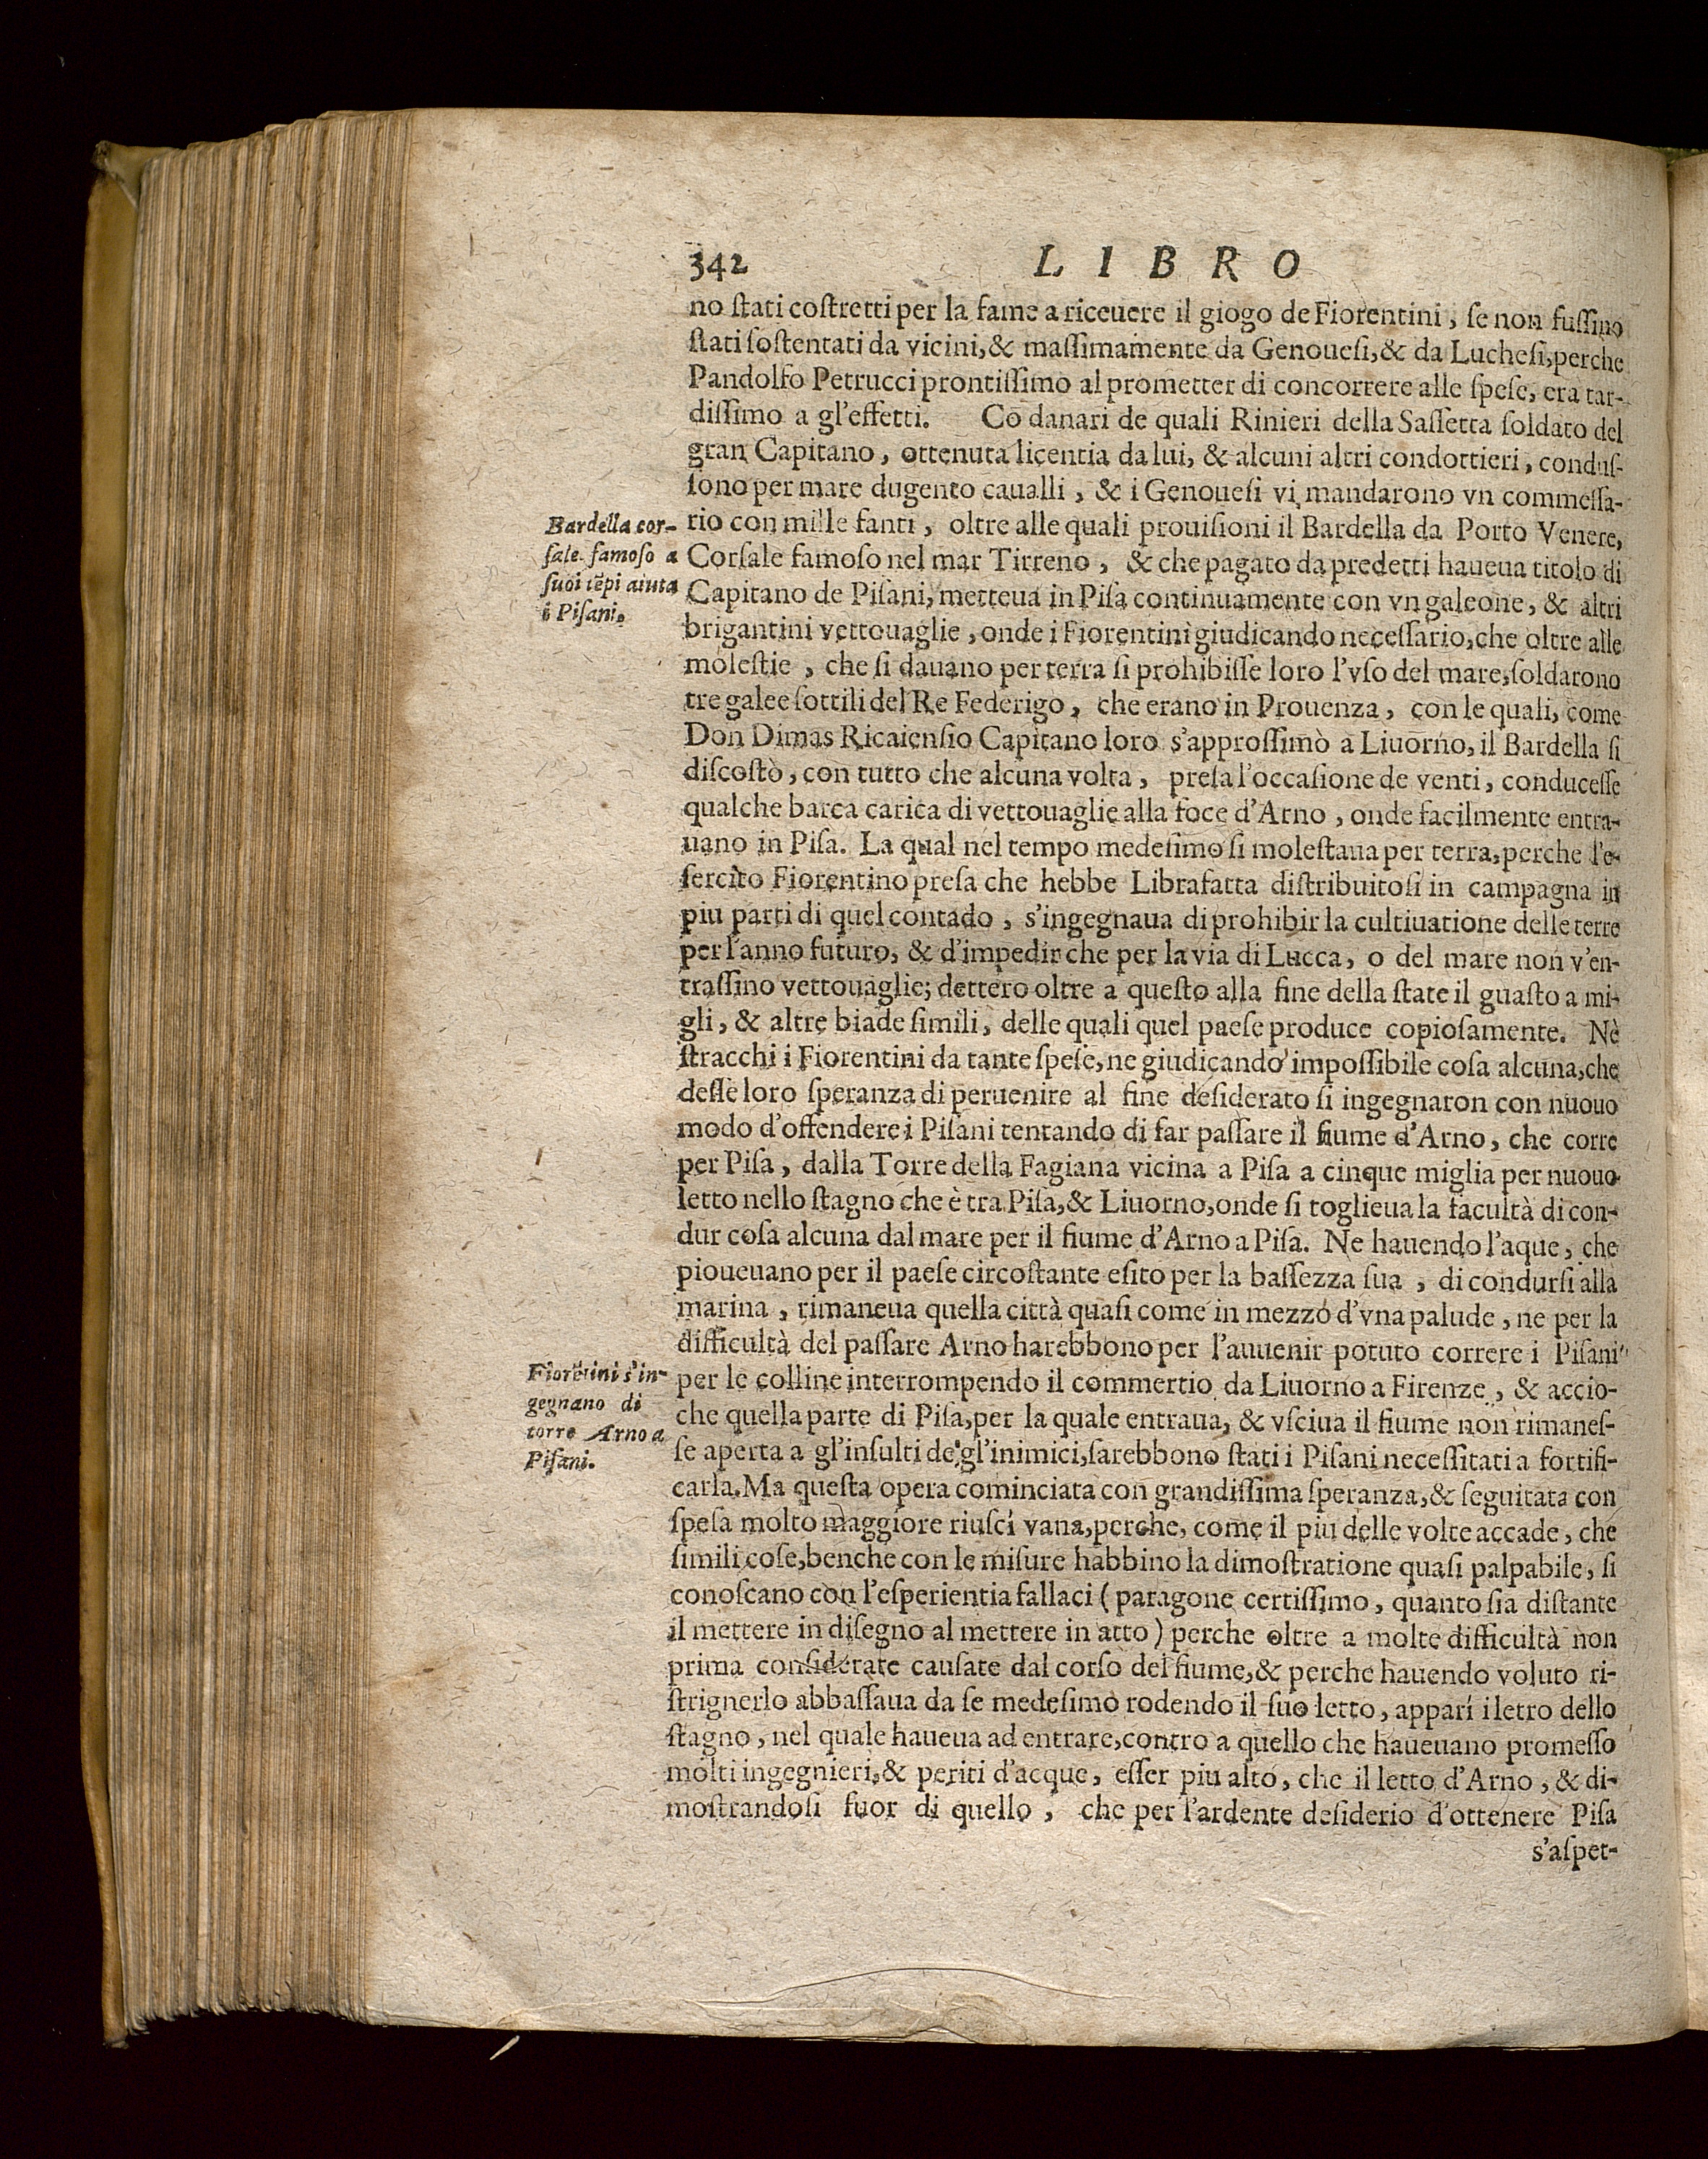 342 LIBRO
no ſtati coſtretti per la fame a riceuere il giogo de Fiorentini, ſe non fuſſino
ſtati ſoſtentati da vicini, & maſſimamente da Genoueſi, & da Lucheſi, perche
Pandolfo Petrucci prontiſſimo al prometter di concorrere alle ſpeſe, era tar-
diſſimo a gl'effetti. Cō danari de quali Rinieri della Saſſetta ſoldato del
gran Capitano, ottenuta licentia da lui, & alcuni altri condottieri, conduſ-
ſono per mare dugento caualli, & i Genoueſi vi mandarono vn commeſſa-
rio con mille fanti, oltre alle quali prouiſioni il Bardella da Porto Venere,
Corſale famoſo nel mar Tirreno, & che pagato da predetti haueua titolo di
Capitano de Piſani, metteua in Piſa continuamente con vn galeone, & altri
brigantini vettouaglie, onde i Fiorentini giudicando neceſſario, che oltre alle
moleſtie, che ſi dauano per terra ſi prohibiſſe loro l'vſo del mare, ſoldarono
tre galee ſottili del Re Federigo, che erano in Prouenza, con le quali, come
Don Dimas Ricaienſio Capitano loro s'approſſimò a Liuorno, il Bardella ſi
diſcoſtò, con tutto che alcuna volta, preſa l'occaſione de venti, conduceſſe
qualche barca carica di vettouaglie alla foce d'Arno, onde facilmente entra-
uano in Piſa. La qual nel tempo medeſimo ſi moleſtaua per terra, perche l'e-
ſercito Fiorentino preſa che hebbe Librafatta diſtribuitoſi in campagna in
piu parti di quel contado, s'ingegnaua di prohibir la cultiuatione delle terre
per l'anno futuro, & d'impedir che per la via di Lucca, o del mare non v'en-
traſſino vettouaglie; dettero oltre a queſto alla fine della ſtate il guaſto a mi-
gli, & altre biade ſimili, delle quali quel paeſe produce copioſamente. Nè
ſtracchi i Fiorentini da tante ſpeſe, ne giudicando impoſſibile coſa alcuna, che
deſſe loro ſperanza di peruenire al fine deſiderato ſi ingegnaron con nuouo
modo d'offendere i Piſani tentando di far paſſare il fiume d'Arno, che corre
per Piſa, dalla Torre della Fagiana vicina a Piſa a cinque miglia per nuouo
letto nello ſtagno che è tra Piſa, & Liuorno, onde ſi toglieua la facultà di con-
dur coſa alcuna dal mare per il fiume d'Arno a Piſa. Ne hauendo l'aque, che
pioueuano per il paeſe circoſtante eſito per la baſſezza ſua, di condurſi alla
marina, rimaneua quella città quaſi come in mezzo d'vna palude, ne per la
difficultà del paſſare Arno harebbono per l'auuenir potuto correre i Piſani
per le colline interrompendo il commertio da Liuorno a Firenze, & accio-
che quella parte di Piſa, per la quale entraua, & vſciua il fiume non rimaneſ-
ſe aperta a gl'inſulti de gl'inimici, ſarebbono ſtati i Piſani neceſſitati a fortifi-
carla. Ma queſta opera cominciata con grandiſſima ſperanza, & ſeguitata con
ſpeſa molto maggiore riuſcí vana, perche, come il piu delle volte accade, che
ſimili coſe, benche con le miſure habbino la dimoſtratione quaſi palpabile, ſi
conoſcano con l'eſperientia fallaci (paragone certiſſimo, quanto ſia diſtante
il mettere in diſegno al mettere in atto) perche oltre a molte difficultà non
prima conſiderate cauſate dal corſo del fiume, & perche hauendo voluto ri-
ſtrignerlo abbaſſaua da ſe medeſimo rodendo il ſuo letto, apparí il etro dello
ſtagno, nel quale haueua ad entrare, contro a quello che haueuano promeſſo
molti ingegnieri, & periti d'acque, eſſer piu alto, che il letto d'Arno, & di-
moſtrandoſi fuor di quello, che per l'ardente deſiderio d'ottenere Piſa
s'aſpet-
Bardella cor-
ſale famoſo a
ſuoi tēpi aiuta
i Piſani.
Fiorētini s'in-
gegnano di
torre Arno a
Piſani.